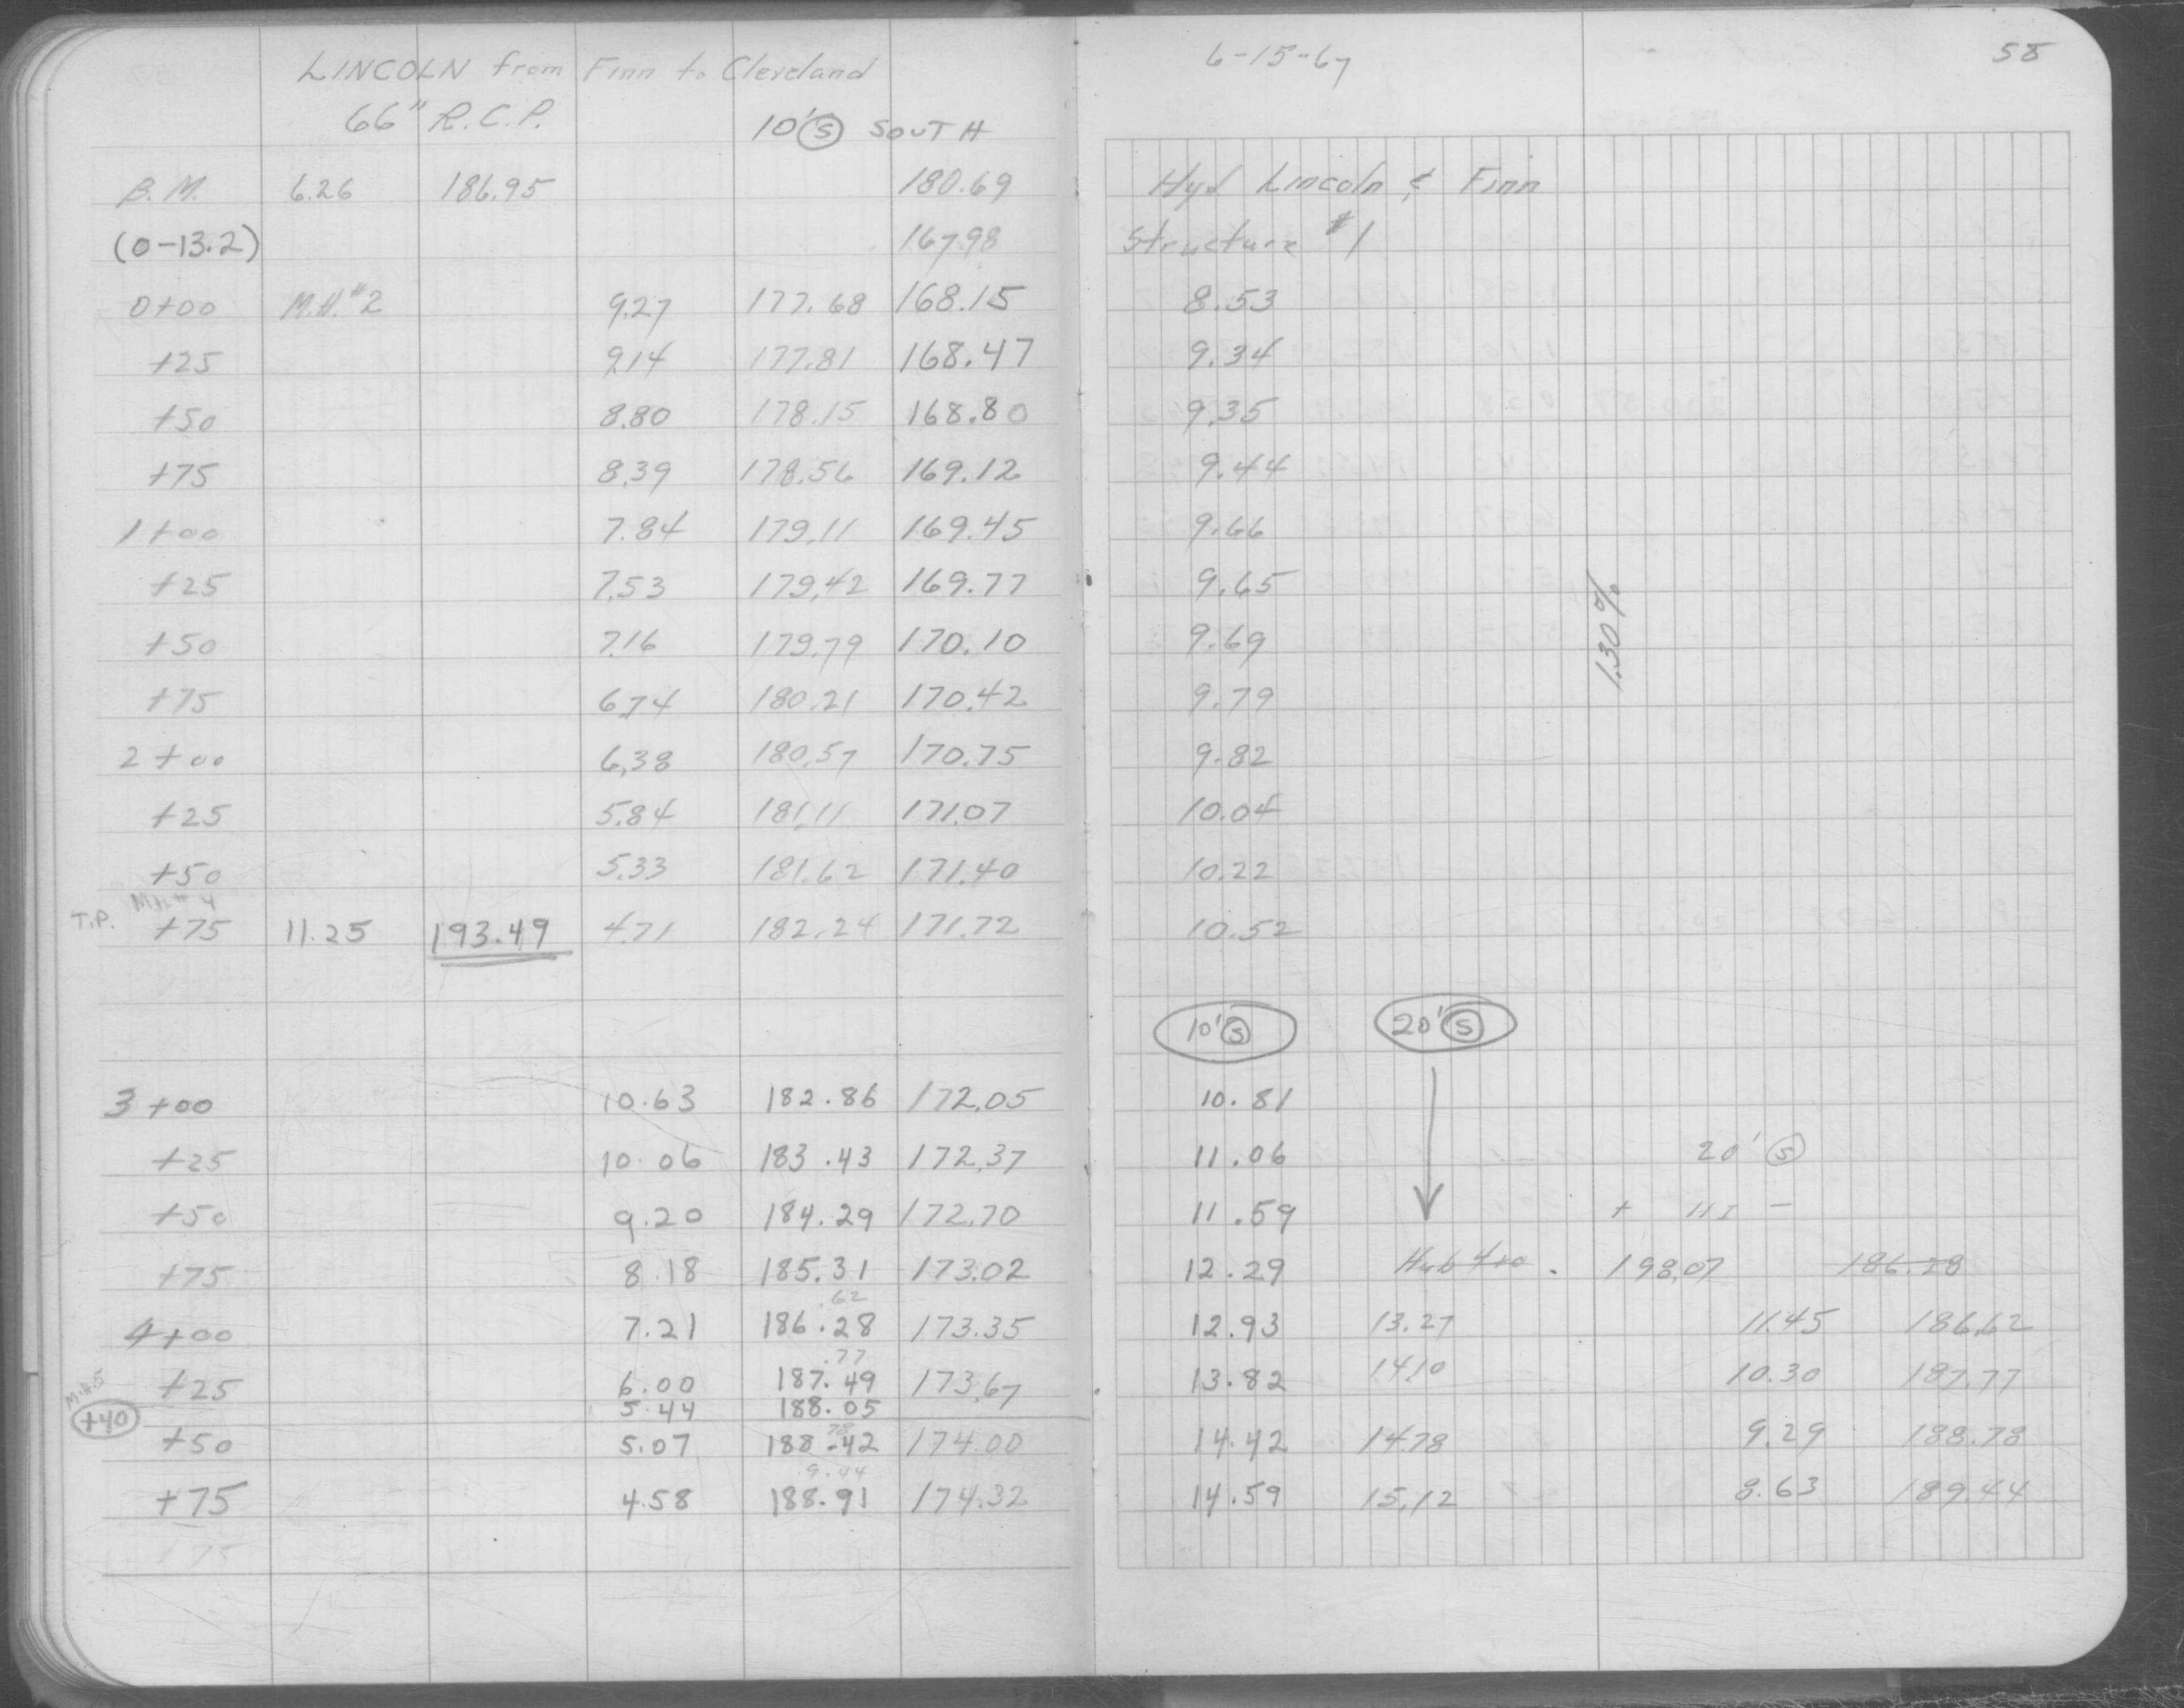 LINCOLN from Finn to Cleveland
66" R.C.P. 10' S SOUTH
B.M. 6.26 186.95 180.69
(0-13.2) 167.98
0+00 M.H. #2 9.27 177.68 168.15
+25 9.14 177.81 168.47
+50 8.80 178.15 168.80
+75 8.39 178.56 169.12
1+00 7.84 179.11 169.45
+25 7.53 179.42 169.77
+50 7.16 179.79 170.10
+75 6.74 180.21 170.42
2+00 6.38 180.57 170.75
+25 5.84 181.11 171.07
+50 5.33 181.62 171.40
M.H. # 4
T.P. +75 11.25 193.49 4.71 182.24 171.72
3+00 10.63 182.86 172.05
+25 10.06 183.43 172.37
+50 9.20 184.29 172.70
+75 8.18 185.31 173.02
.62
4+00 7.21 186.28 173.35
.77
+25 6.00 187.49 173.67
M.H.5 +40 5.44 188.05
.78
+50 5.07 188.42 174.00
9.44
+75 4.58 188.91 174.32
+75
6-15-67 58
Hyd Lincoln & Finn
Structure #1
8.53
9.34
9.35
9.44
9.66
9.65
9.69
9.79
9.82
10.04
10.22
10.52
1.30%
10' S 20' S
10.81
11.06 20' S
11.59 + HI -
12.29 Hub 4+0 198.07 186.28
12.93 13.27 11.45 186.62
13.82 14.10 10.30 187.77
14.42 14.78 9.29 188.78
14.59 15.12 8.63 189.44